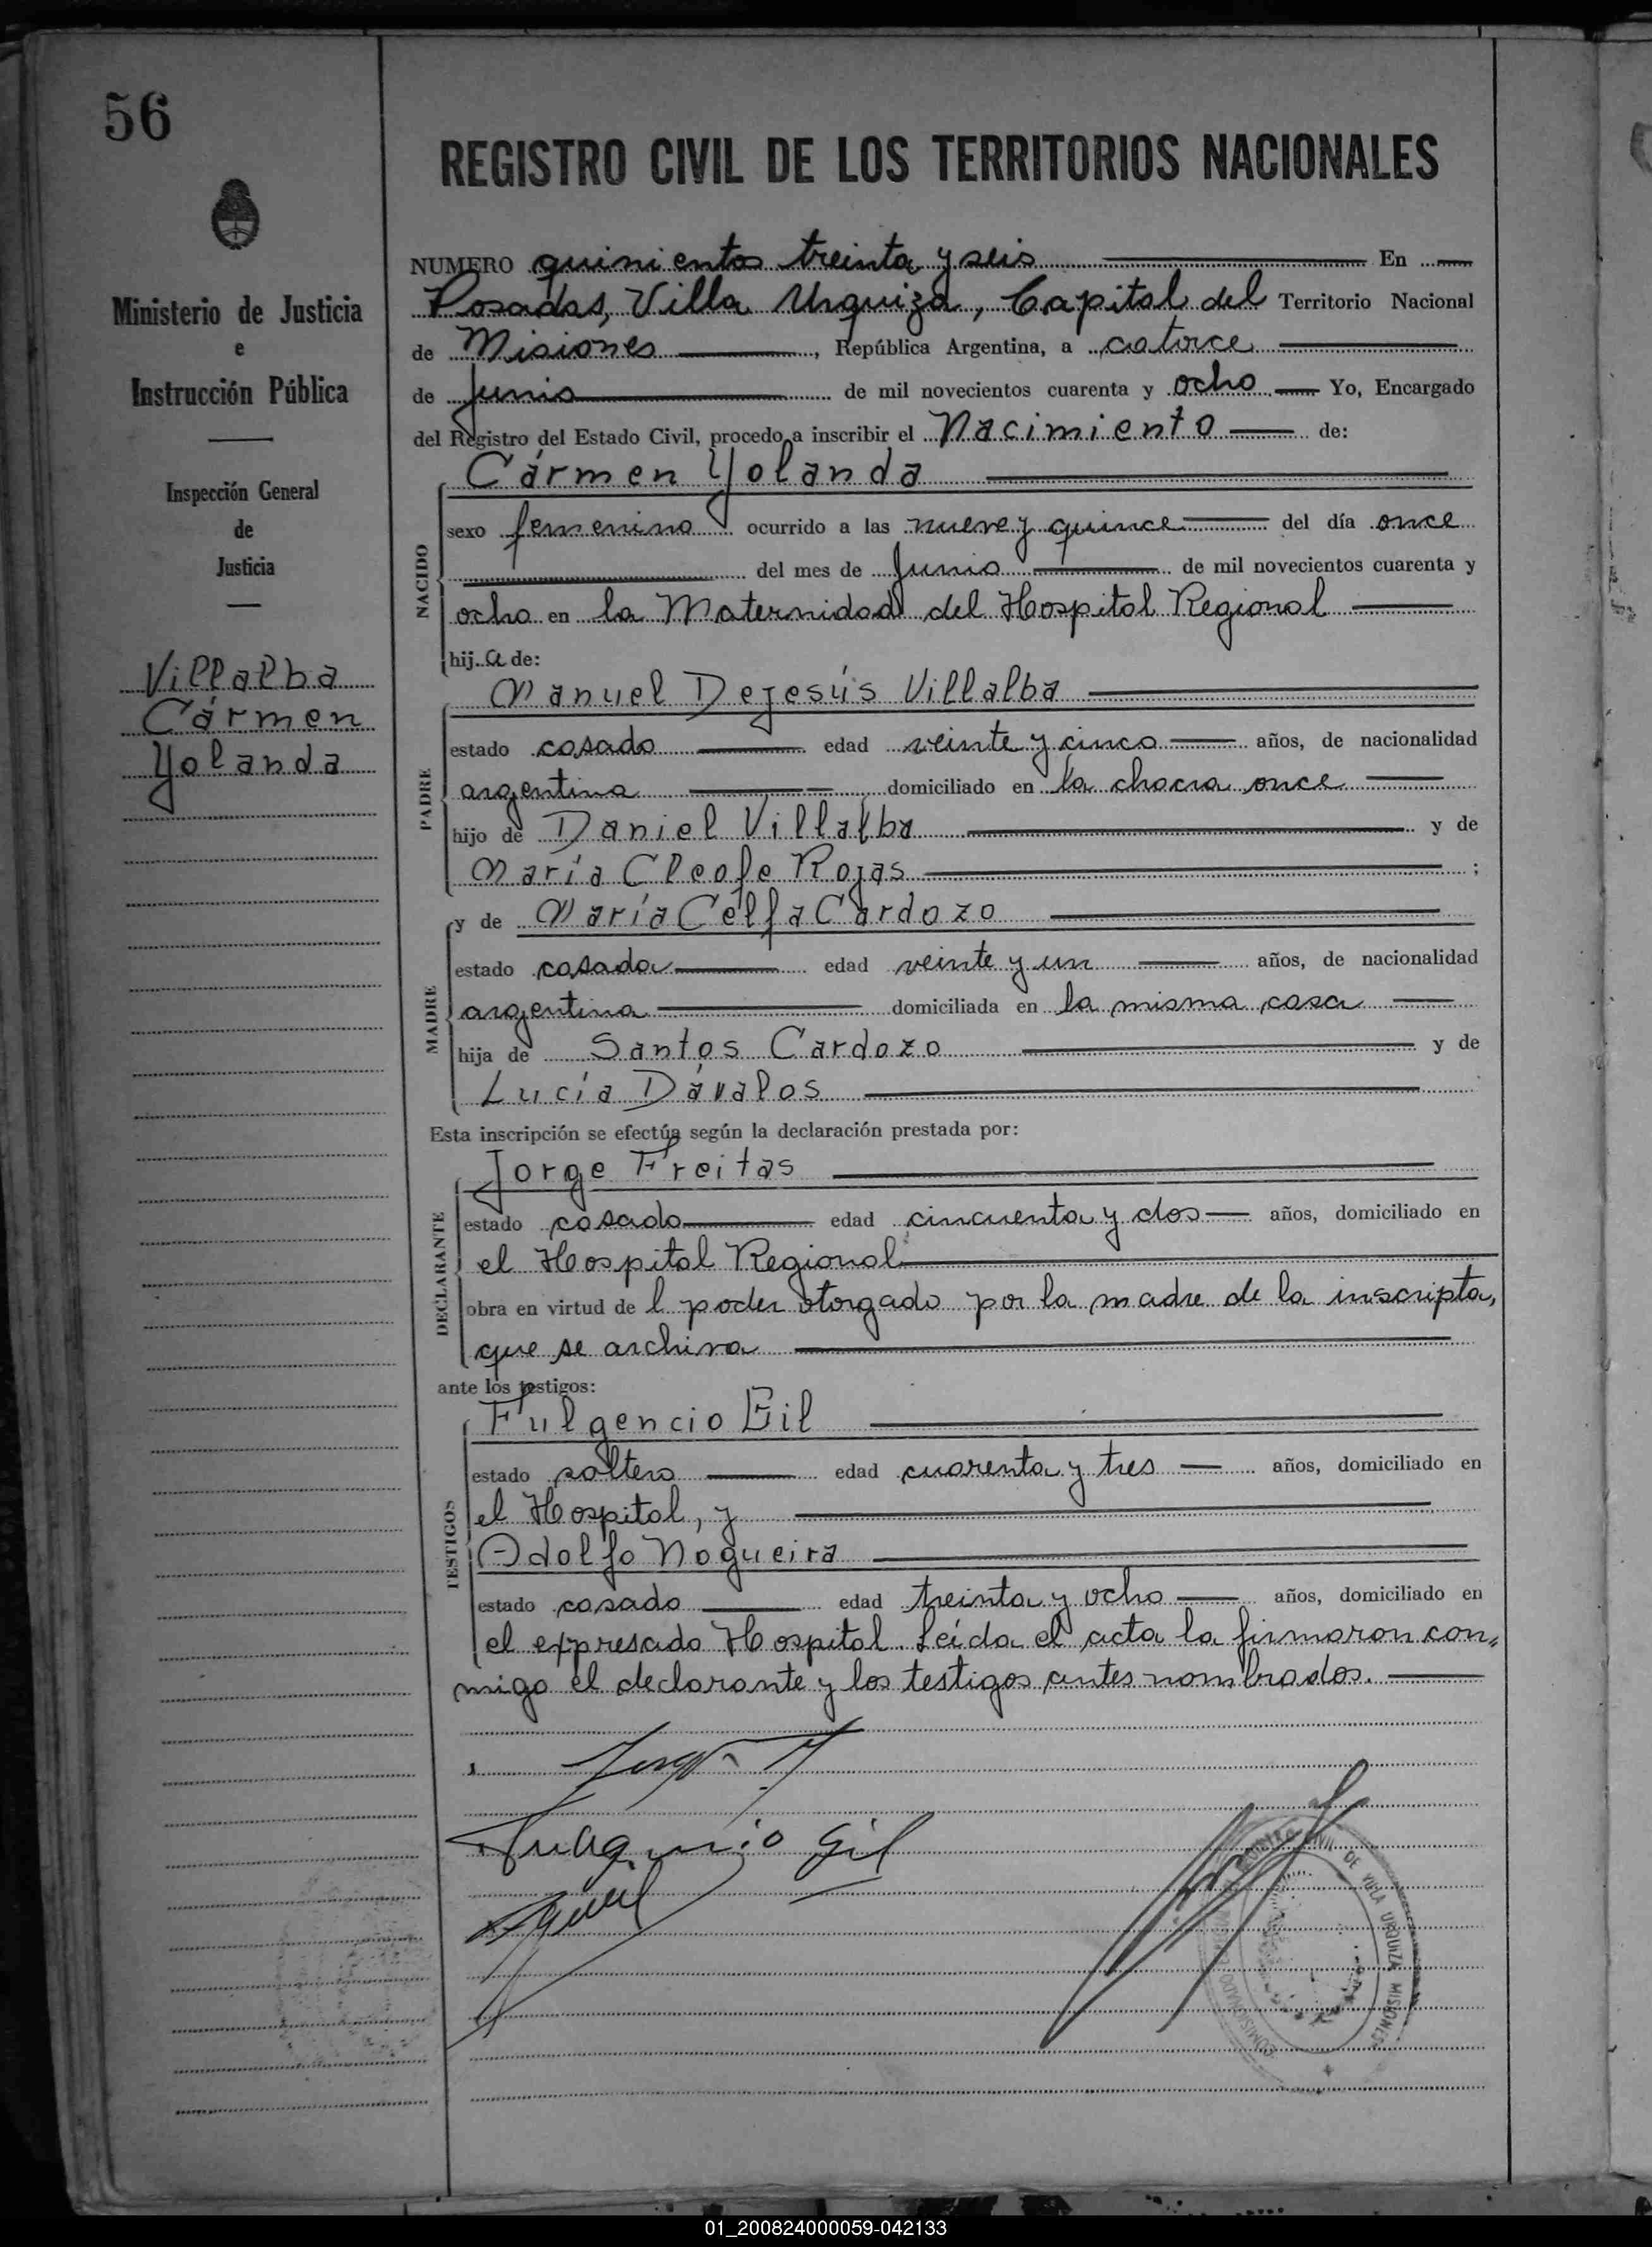 56
Ministerio de Justicia
e
Instrucción Pública
Inspección General
de
Justicia
Villalba
Cármen
Yolanda
REGISTRO CIVIL DE LOS TERRITORIOS NACIONALES
NUMERO quinientos treinta y seis En
Posadas, Villa Urquiza, Capital del Territorio Nacional
de Misiones, República Argentina, a catorce
de Junio de mil novecientos cuarenta y ocho Yo, Encargado
del Registro del Estado Civil, procedo a inscribir el Nacimiento de:
Cármen Yolanda
NACIDO
sexo femenino ocurrido a las nueve y quince del día once
del mes de Junio de mil novecientos cuarenta y
ocho en la Maternidad del Hospital Regional
hij a de:
Manuel Dejesús Villalba
PADRE
estado casado edad veinte y cinco años, de nacionalidad
argentina domiciliado en la chacra once
hijo de Daniel Villalba y de
María Cleofe Rojas ;
y de María Celfa Cardozo
MADRE
estado casada edad veinte y un años, de nacionalidad
argentina domiciliada en la misma casa
hija de Santos Cardozo y de
Lucía Dávalos
Esta inscripción se efectúa según la declaración prestada por:
Jorge Freitas
DECLARANTE
estado casado edad cincuenta y dos años, domiciliado en
el Hospital Regional
obra en virtud de l poder otorgado por la madre de la inscripta,
que se archiva
ante los testigos:
Fulgencio Gil
TESTIGOS
estado soltero edad cuarenta y tres años, domiciliado en
el Hospital, y
Adolfo Nogueira
estado casado edad treinta y ocho años, domiciliado en
el expresado Hospital. Leída el acta la firmaron con-
migo el declarante y los testigos antes nombrados.
Gil
CIVIL DE VILLA URQUIZA MISIONES
01_200824000059-042133